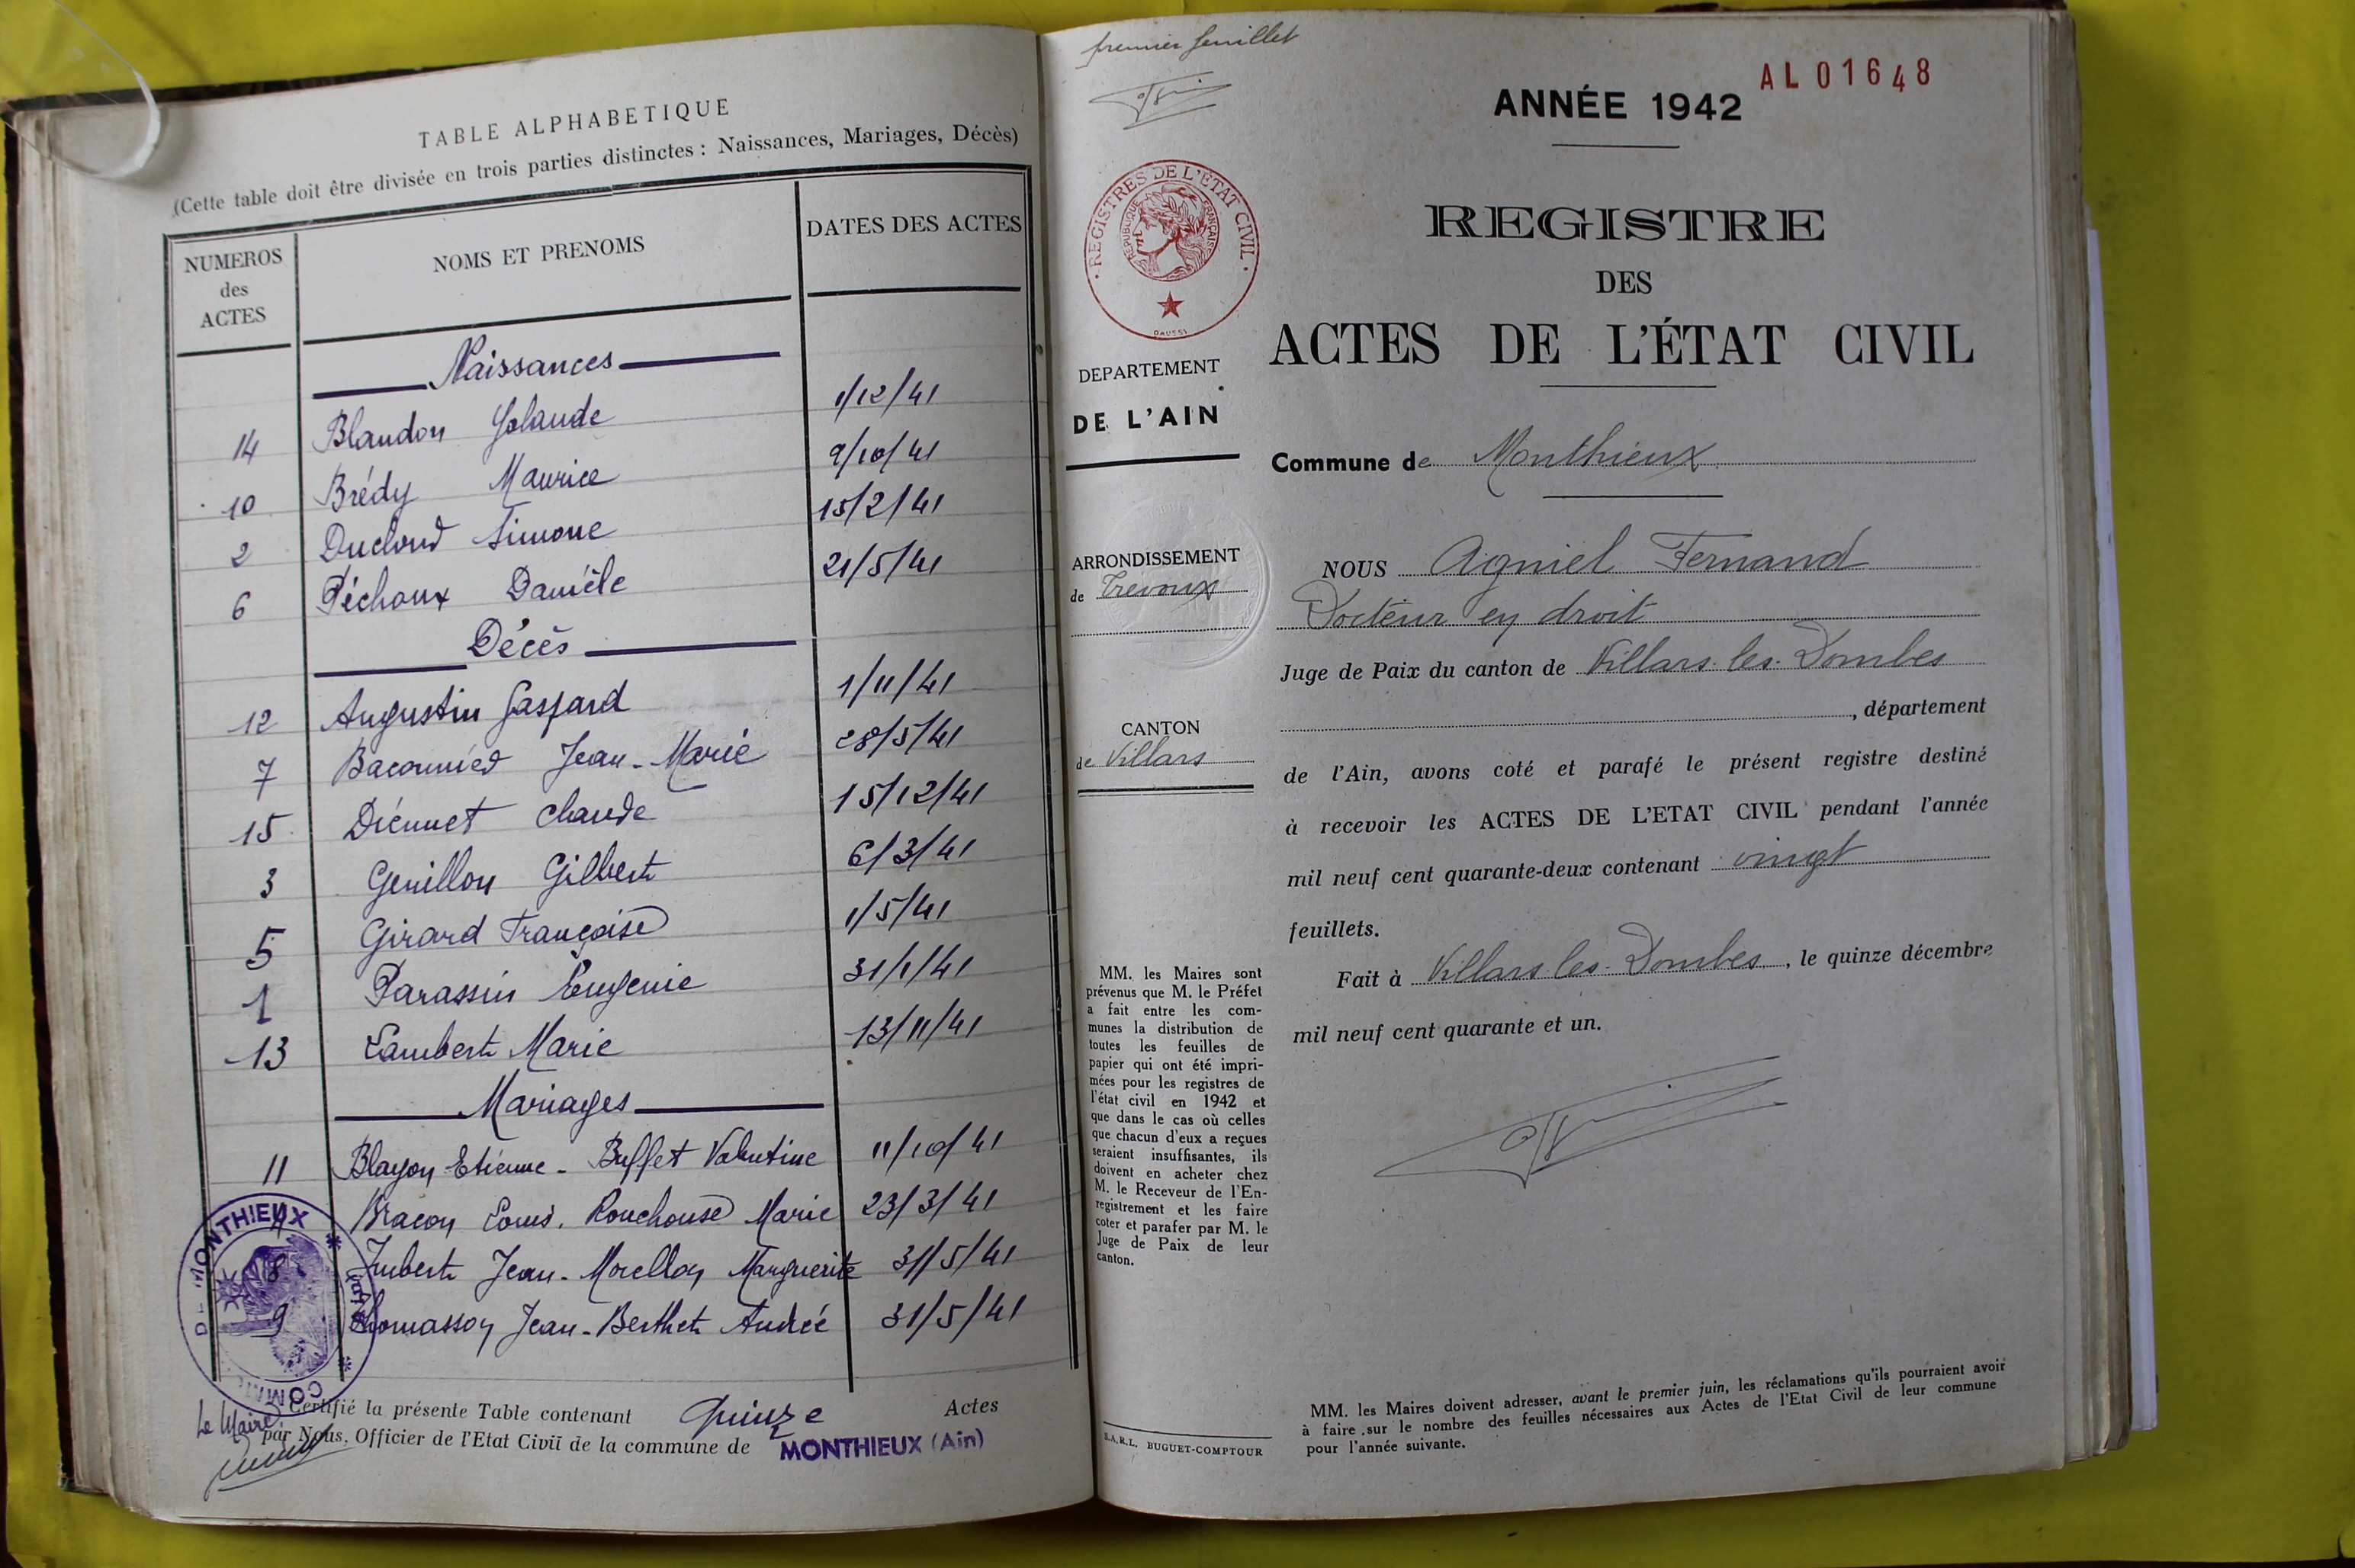 TABLE ALPHABETIQUE
(Cette table doit être divisée en trois parties distinctes : Naissances, Mariages, Décès)
NUMEROS des ACTES NOMS ET PRENOMS DATES DES ACTES
Naissances
14 Blandon Yolande 1/12/41
10 Brédy Maurice 9/10/41
2 Ducloud Simone 15/2/41
6 Péchoux Danièle 21/5/41
Décès
12 Augustin Gaspard 1/11/41
7 Baconnied Jean-Marie 28/5/41
15 Diennet Claude 15/12/41
3 Genillon Gilbert 6/3/41
5 Girard Françoise 1/5/41
1 Parassin Eugenie 31/1/41
13 Lambert Marie 13/11/41
Mariages
11 Blayon Etienne - Buffet Valentine 11/10/41
4 Bracon Louis. Rouchouse Marie 23/3/41
8 Imbert Jean - Morellon Marguerite 31/5/41
9 Thomasson Jean - Berthet Andrée 31/5/41
MONTHIEUX
Le Maire
Certifié la présente Table contenant Quinze Actes
par Nous, Officier de l'Etat Civil de la commune de MONTHIEUX (Ain)
premier feuillet
AL 01648
ANNÉE 1942
REGISTRES DE L'ETAT CIVIL
REPUBLIQUE FRANÇAISE
REGISTRE
DES
ACTES DE L'ÉTAT CIVIL
DEPARTEMENT
DE L'AIN
Commune de Monthieux
ARRONDISSEMENT
de Trevoux
CANTON
de Villars
NOUS Agniel Fernand
Docteur en droit
Juge de Paix du canton de Villars-les-Dombes
, département
de l'Ain, avons coté et parafé le présent registre destiné
à recevoir les ACTES DE L'ETAT CIVIL pendant l'année
mil neuf cent quarante-deux contenant vingt
feuillets.
Fait à Villars les Dombes, le quinze décembre
mil neuf cent quarante et un.
MM. les Maires sont
prévenus que M. le Préfet
a fait entre les com-
munes la distribution de
toutes les feuilles de
papier qui ont été impri-
mées pour les registres de
l'état civil en 1942 et
que dans le cas où celles
que chacun d'eux a reçues
seraient insuffisantes, ils
doivent en acheter chez
M. le Receveur de l'En-
registrement et les faire
coter et parafer par M. le
Juge de Paix de leur
canton.
S.A.R.L. BUGUET-COMPTOUR
MM. les Maires doivent adresser, avant le premier juin, les réclamations qu'ils pourraient avoir
à faire sur le nombre des feuilles nécessaires aux Actes de l'Etat Civil de leur commune
pour l'année suivante.